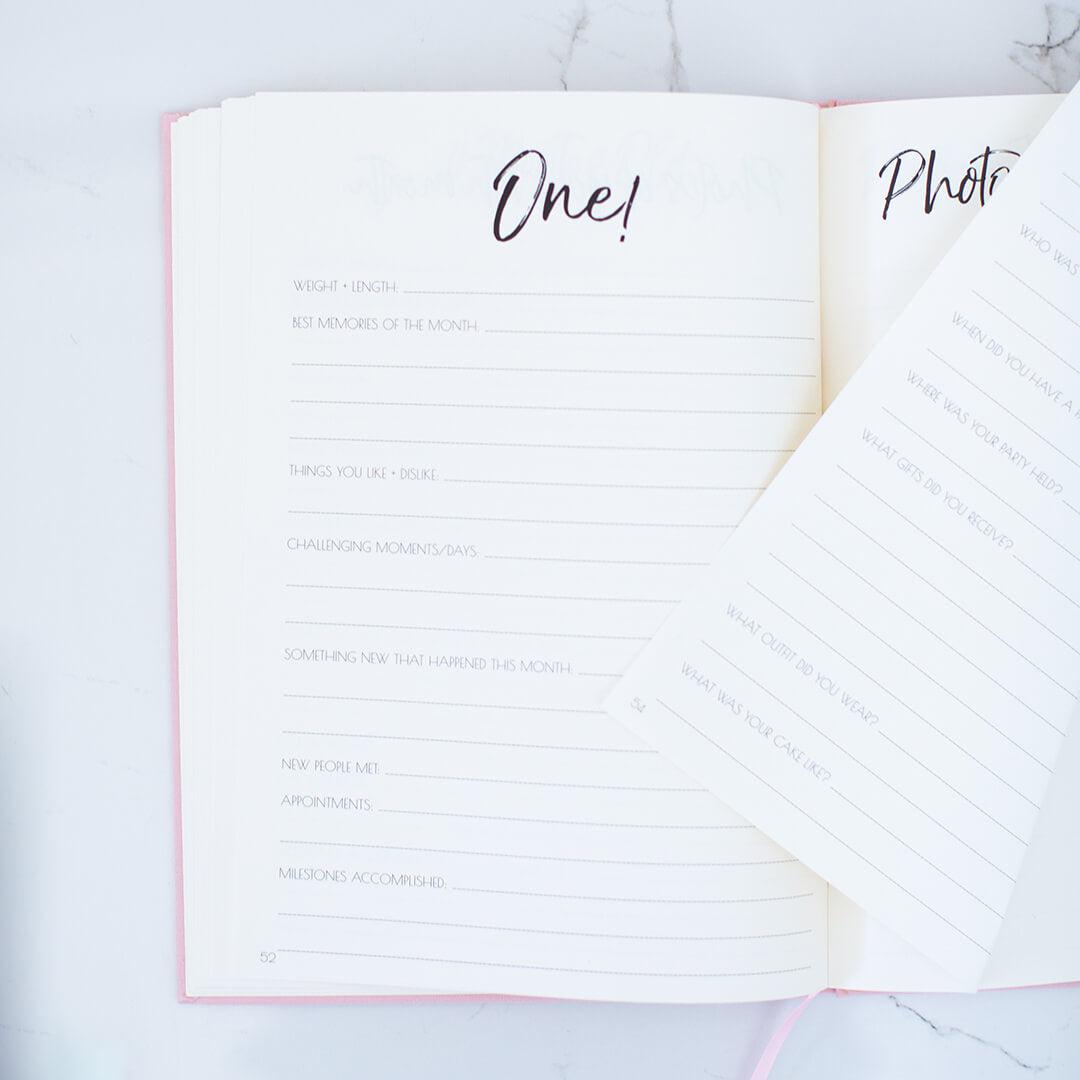 One!
WEIGHT + LENGTH:
BEST MEMORIES OF THE MONTH:
THINGS YOU LIKE + DISLIKE:
CHALLENGING MOMENTS/DAYS:
SOMETHING NEW THAT HAPPENED THIS MONTH:
NEW PEOPLE MET:
APPOINTMENTS:
MILESTONES ACCOMPLISHED:
52
WHO WAS
WHEN DID YOU HAVE A
WHERE WAS YOUR PARTY HELD?
WHAT GIFTS DID YOU RECEIVE?
WHAT OUTFIT DID YOU WEAR?
WHAT WAS YOUR CAKE LIKE?
54